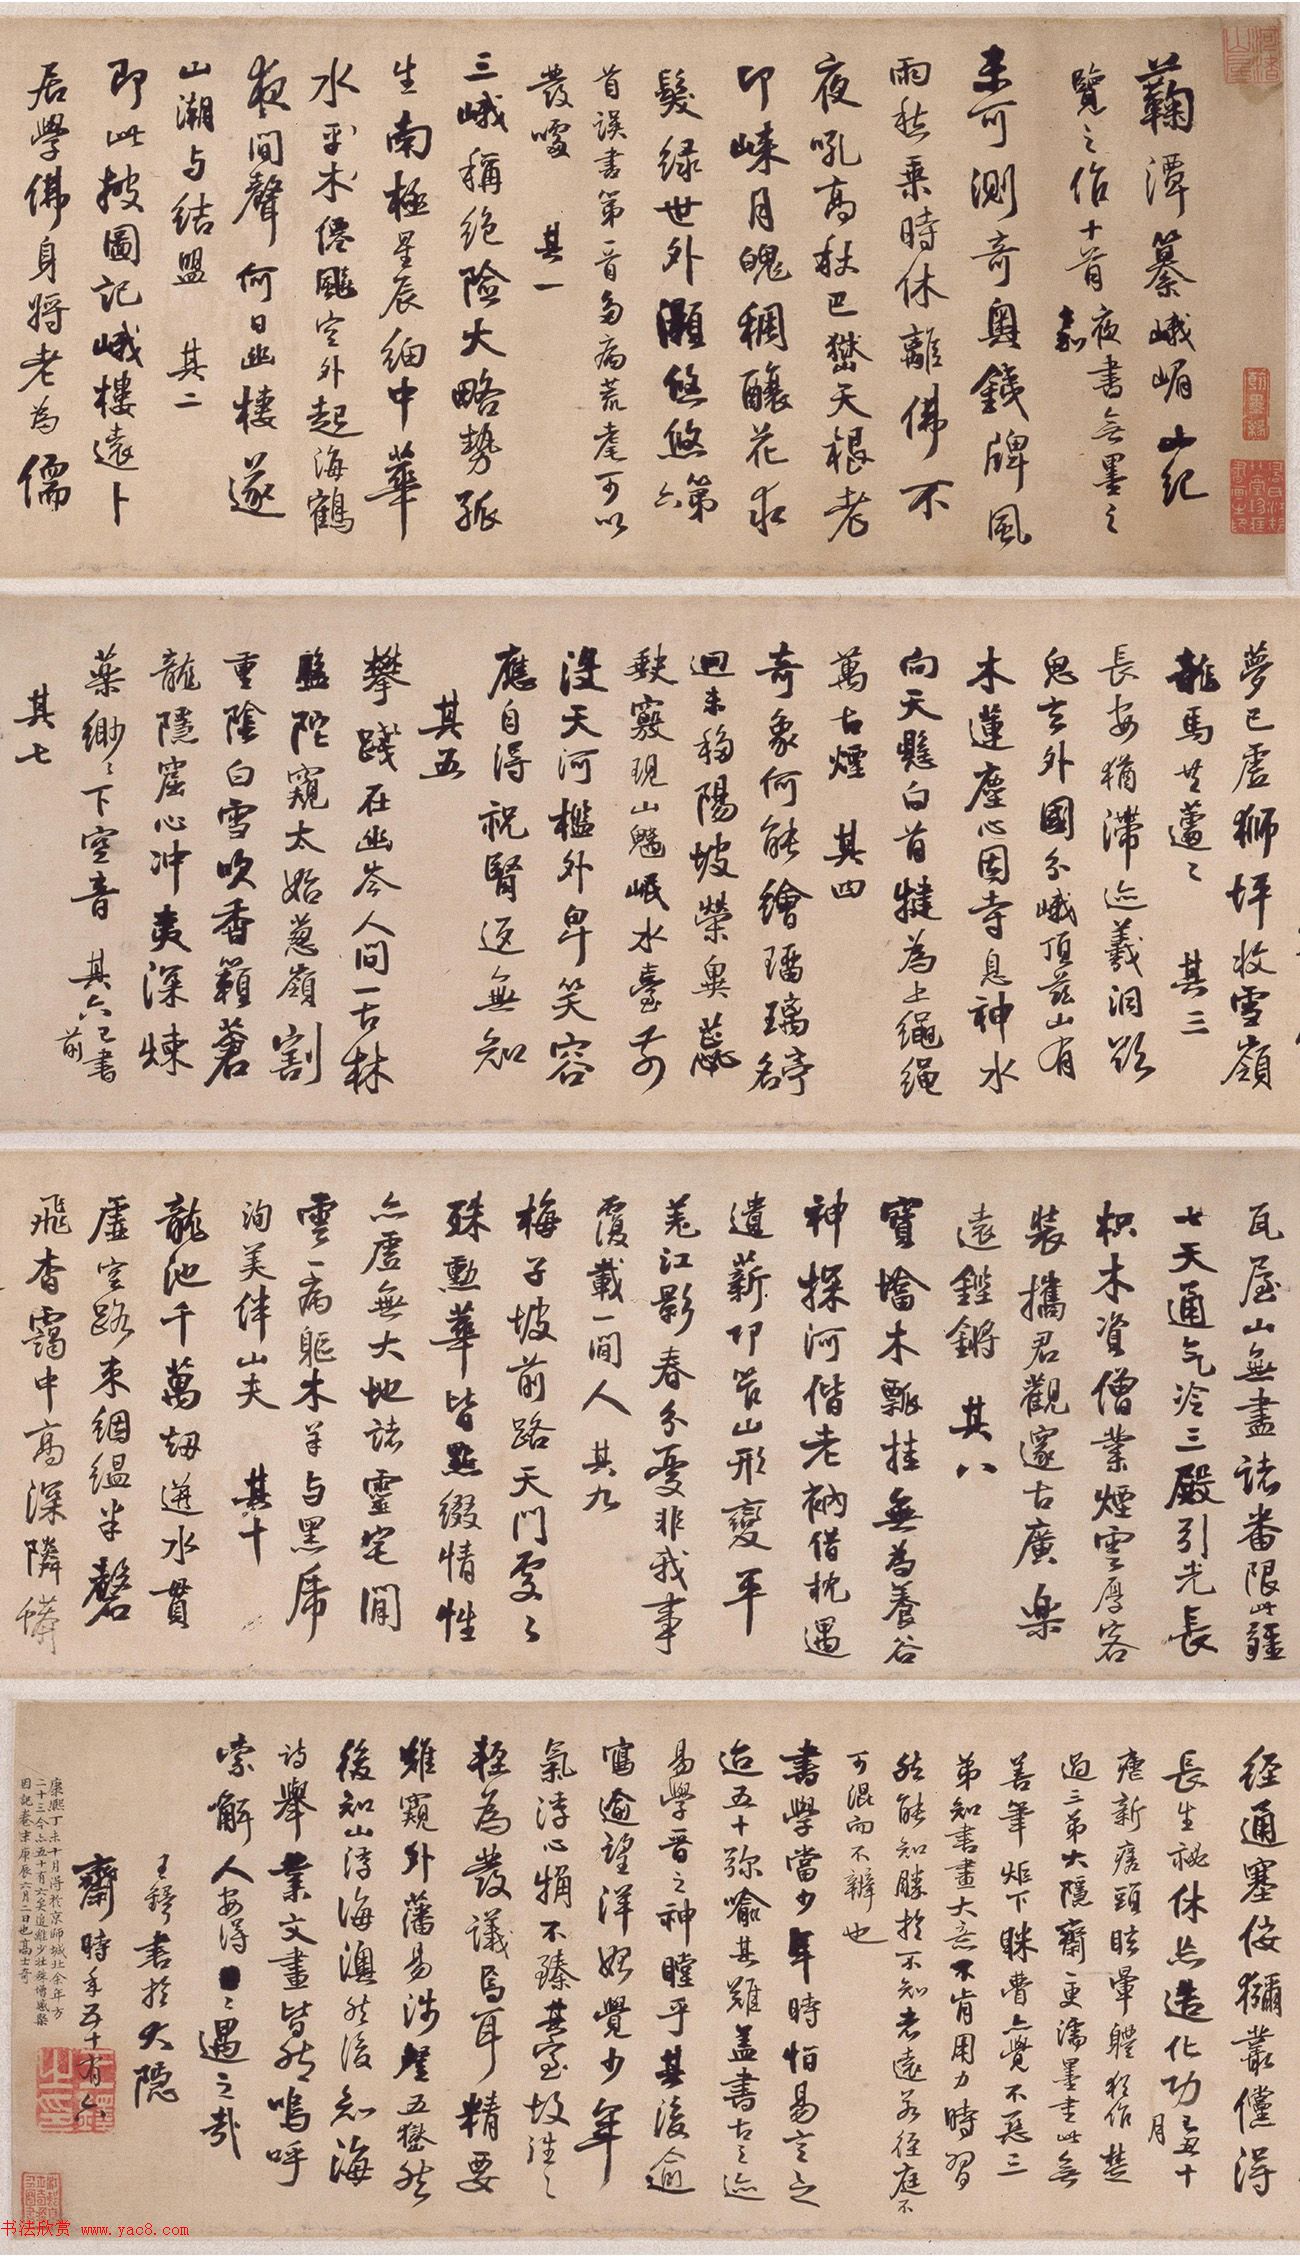 鞠潭纂峨嵋山紀
覽之作十首夜書無墨之
未可測奇奧錢牌風
雨愁乘時休離佛不
夜吼高秋巴𡾰天根老
印峽月魄稠釀花求
髮綠世外灝悠悠第六
首誤書第一首多病荒耄可以
發噱 其一
三峨稱絕險大略勢孤
生南極星辰細中華
水氣木僊颸空外起海鶴
夜間聲何日幽棲遂
山潮与結盟 其二
即此披圖記峨樓遠卜
居學佛身將老為儒
夢已虛獅坪收雪嶺
龍馬共蘧〻 其三
長安猶滯迹羲洞欲
鬼玄外國分峨頂茲山有
木蓮塵心因寺息神水
向天懸白首犍為上繩繩
萬古煙 其四
奇象何能繪璚璃名
迴未移陽坡榮奧蕊
缺竅現山魑岷水臺前
沒天河檻外卑笑容
應自得祝腎返無知
其五
攀踐在幽岑人間一古林
盤陀窺太始蔥嶺割
重陰白雪吹香籟蒼
龍隱窟心冲夷深煉
藥緲〻下空音 其六已書前
其七
瓦屋山無盡諸番限此疆
七天通气冷三殿引光長
枳木資僧業煙雲厚客
裝攜君觀邃古廣樂
遠鏗鏘 其八
寶壇木瓢挂無為養谷
神探河偕老衲借枕遇
遺薪邛笮山形變平
羌江影春分憂非我事
覆載一閒人 其九
梅子坡前路天門處〻
殊勳華皆點綴情性
亦虛無大地諸靈宅閒
雲一病軀木羊与黑虎
洵美伴山夫 其十
龍池千萬劫遊水貫
虛空路束絪縕半磬
飛杳靄中高深隣蠎
經通塞佞獼叢儻得
長生祕休兵造化功 己丑十月
瘧新痊頭眩暈體猶作楚
過三弟大隱齋更濡墨書此無
善筆炬下眯瞢亦覺不惡三
弟知書畫大意不肯用力時習
然能知勝於不知者遠若徑庭不
可混而不辨也
書學當少年時怕易言之
迨五十弥喻其難蓋書古之迹
易學晋之神瞠乎其後逾
寫逾望洋始覺少年
氣浮心猾不臻其室故往〻
輕為發議焉耳精要
雖窺外藩易涉壁五嶽然
後知山浮海澳然後知海
詩舉業文畫皆然嗚呼
索解人安得〻遇之哉
王鐸書於大隱
齋時年五十有六
康熙丁未十月得於京師城北余年方
二十三今六五十有六矣追維少壯殊惕感槩
因記卷末庚辰六月二日也高士奇
书法欣赏 www.yac8.com